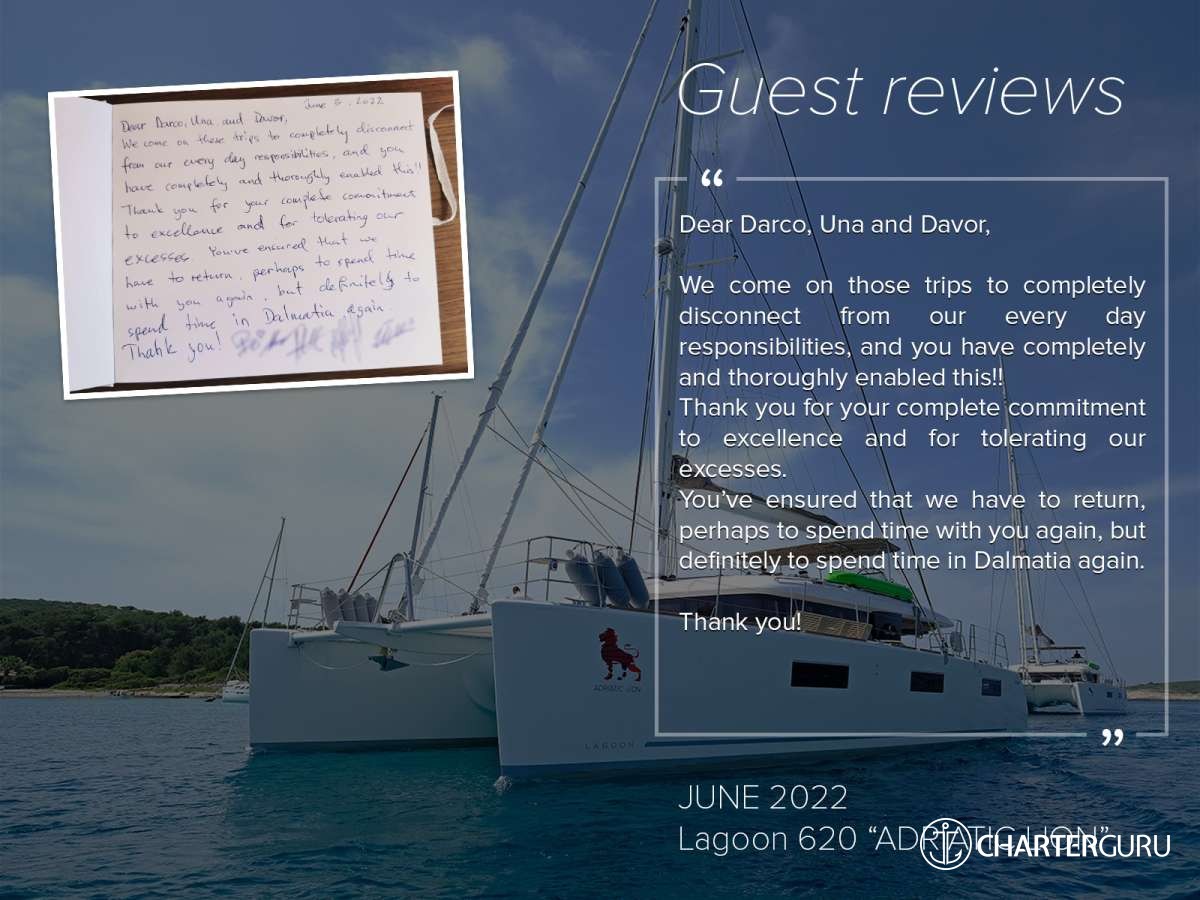 June 5, 2022
Dear Darco, Una and Davor,
We come on these trips to completely disconnect
from our every day responsibilities, and you
have completely and thoroughly enabled this!!
Thank you for your complete commitment
to excellence and for tolerating our
excesses. You've ensured that we
have to return, perhaps to spend time
with you again, but definitely to
spend time in Dalmatia again.
Thank you!
Guest reviews
“
Dear Darco, Una and Davor,
We come on those trips to completely
disconnect from our every day
responsibilities, and you have completely
and thoroughly enabled this!!
Thank you for your complete commitment
to excellence and for tolerating our
excesses.
You’ve ensured that we have to return,
perhaps to spend time with you again, but
definitely to spend time in Dalmatia again.
Thank you!
”
ADRIATIC LION
LAGOON
JUNE 2022
Lagoon 620 “ADRIATIC LION”
CHARTERGURU